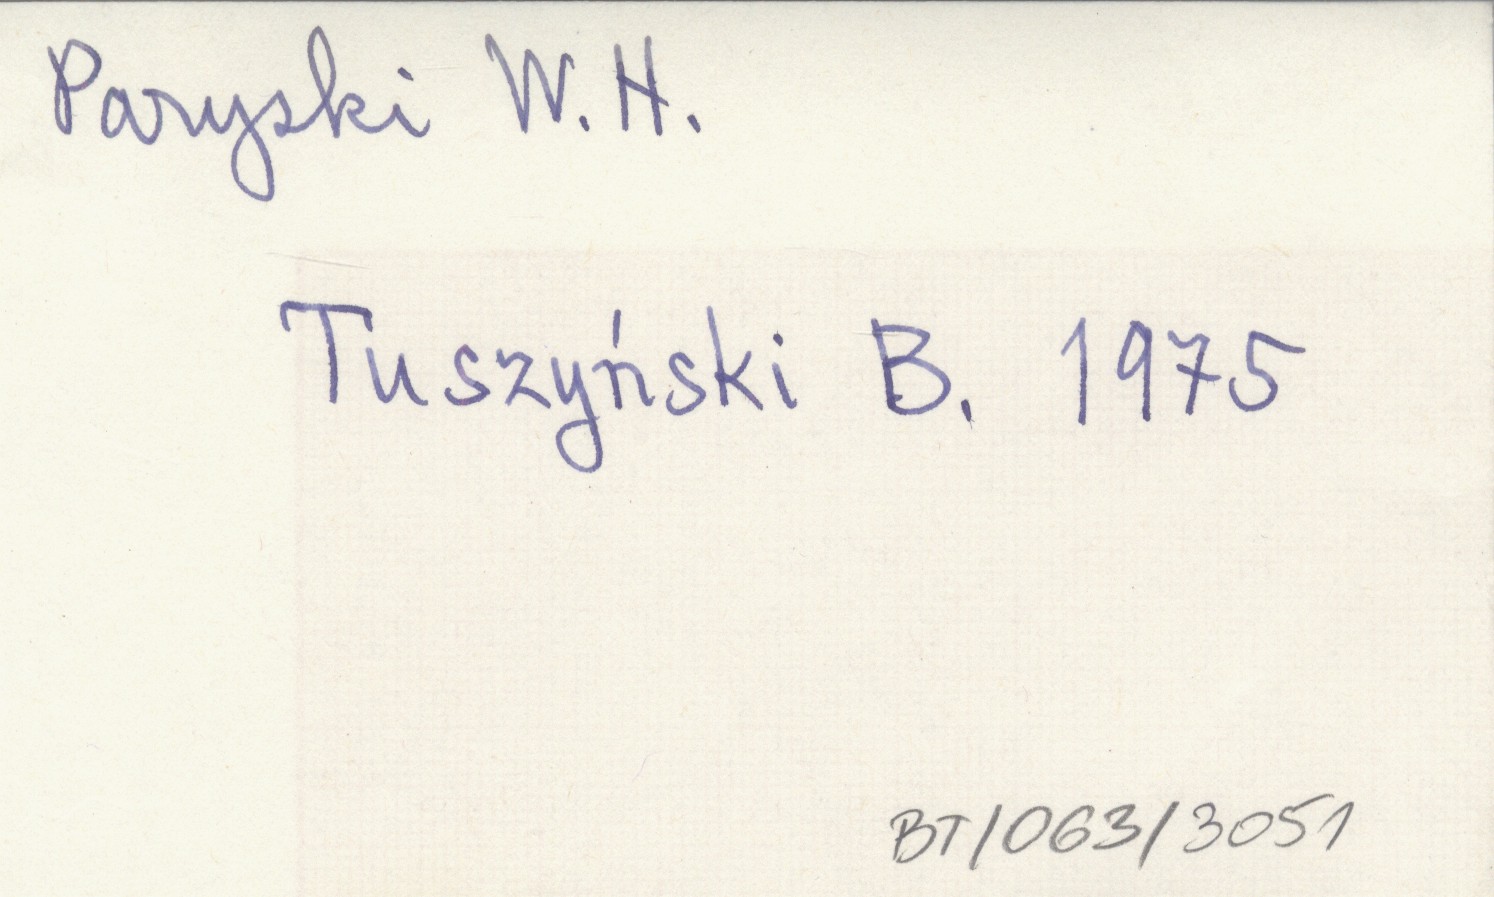 Paryski W.H.
Tuszyński B. 1975
BT/063/3051